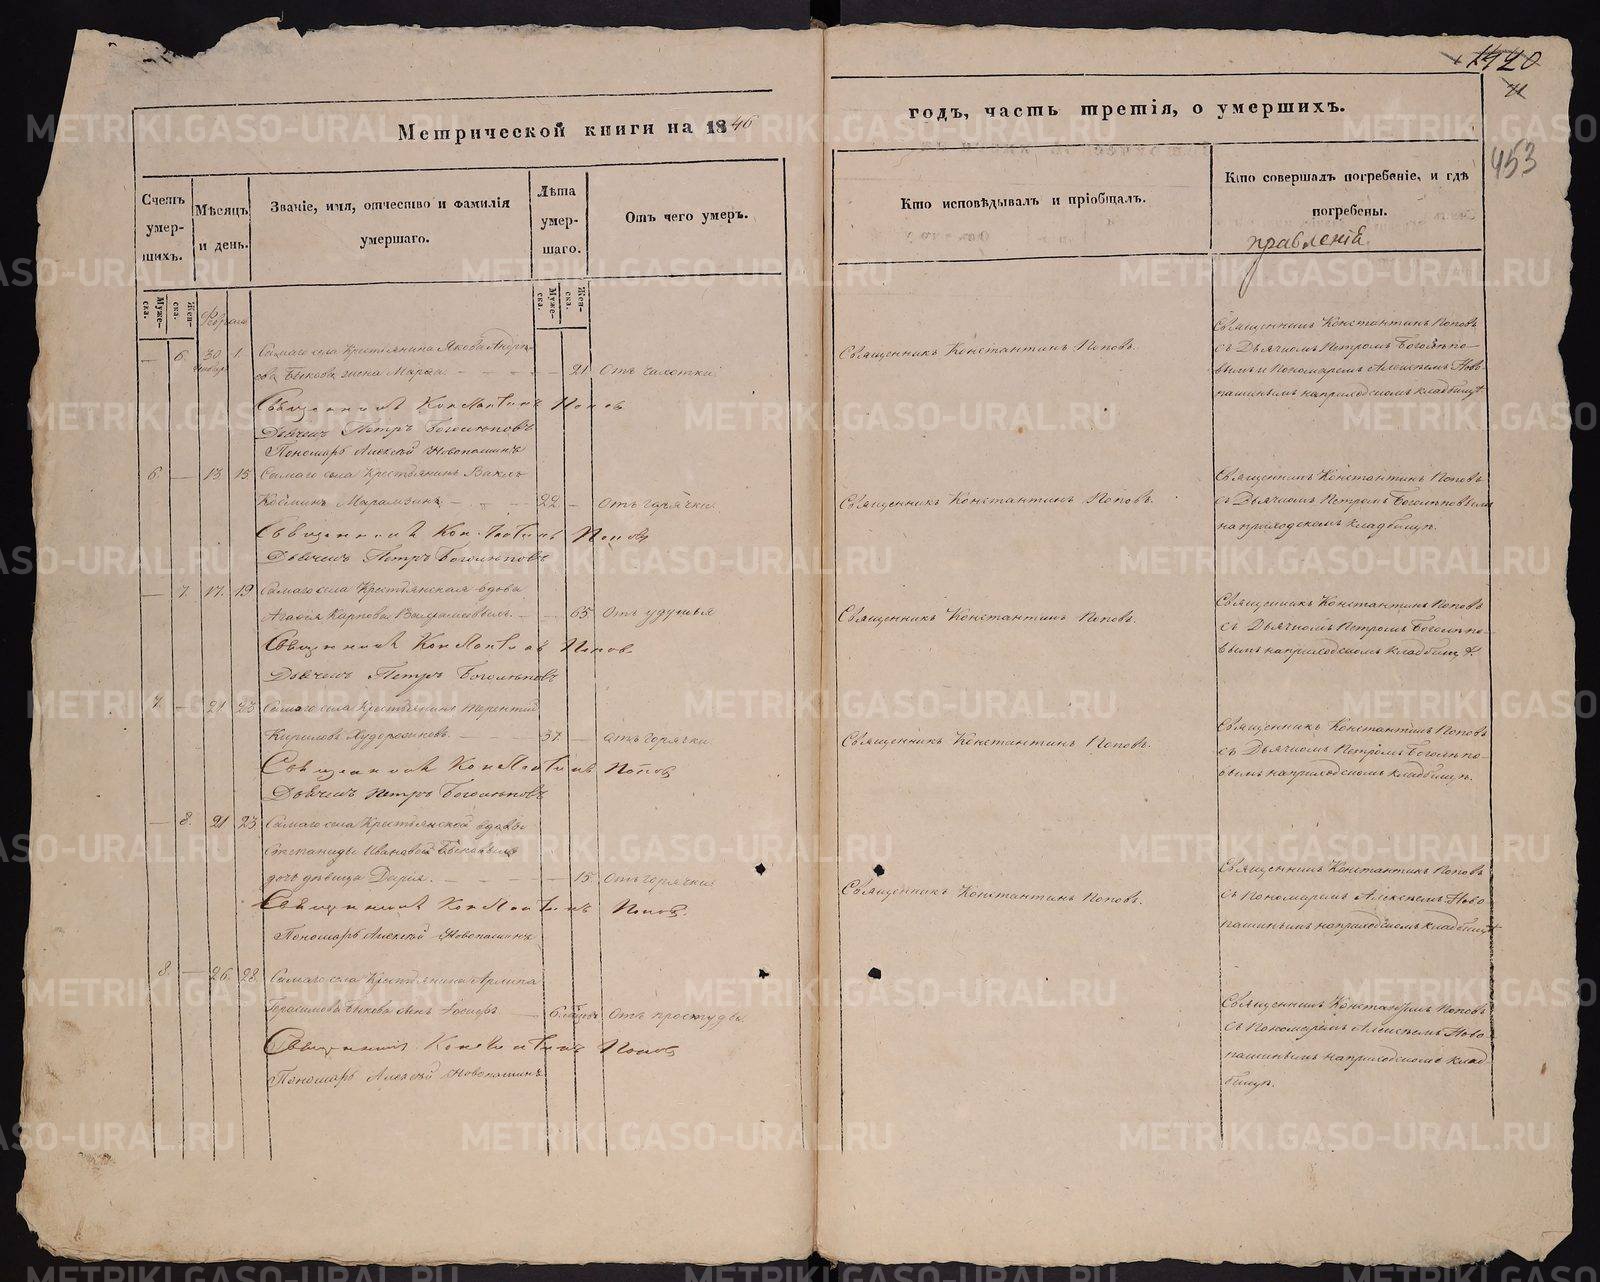 1420
11
453
Метрической книги на 1846
годъ, часть третія, о умершихъ.
Счетъ умер-шихъ.
Мѣсяцъ и день.
Званіе, имя, отчество и фамилія умершаго.
Лѣта умер-шаго.
Отъ чего умеръ.
Кто исповѣдывалъ и пріобщалъ.
Кто совершалъ погребеніе, и гдѣ погребены.
правленія
Муже-ска.
Жен-ска.
Февраля
Муже-ска.
Жен-ска.
— 6. 30 1. Самаго села Крестьянина Якова Андрее-
ва Быкова жена Марфа. — — 21 Отъ чахотки
Священникъ Константинъ Поповъ.
Священникъ Константинъ Поповъ
съ Дьячкомъ Петромъ Боголѣпо-
вымъ и Пономаремъ Алексѣемъ Ново-
пашинымъ на приходскомъ кладбищѣ
Священникъ Константинъ Попов
Дьячекъ Петръ Боголѣповъ
Пономарь Алексѣй Новопашинъ
6 — 13. 15 Самаго села Крестьянинъ
Косминъ — 22 — Отъ горячки
Священникъ Константинъ Поповъ.
Священникъ Константинъ Поповъ
съ Дьячкомъ Петромъ Боголѣповымъ
на приходскомъ кладбищѣ.
Священникъ Константинъ Попов
Дьячекъ Петръ Боголѣповъ
— 7. 17. 19 Самаго села Крестьянская вдова
Агафія Карпова — 65. Отъ удушья
Священникъ Константинъ Поповъ.
Священникъ Константинъ Поповъ
съ Дьячкомъ Петромъ Боголѣпо-
вымъ на приходскомъ кладбищѣ.
Священникъ Константинъ Попов
Дьячекъ Петръ Боголѣповъ
7. — 21. 23 Самаго села Крестьянинъ Терентій
Кириловъ — 37. — отъ горячки
Священникъ Константинъ Поповъ.
Священникъ Константинъ Поповъ
съ Дьячкомъ Петромъ Боголѣпо-
вымъ на приходскомъ кладбищѣ.
Священникъ Константинъ Попов
Дьячекъ Петръ Боголѣповъ
— 8. 21 23 Самаго села Крестьянской вдовы
Степаниды Ивановой
дочь дѣвица Дарія. — — 15. Отъ горячки
Священникъ Константинъ Поповъ.
Священникъ Константинъ Поповъ
съ Пономаремъ Алексѣемъ Ново-
пашинымъ на приходскомъ кладбищѣ
Священникъ Константинъ Попов.
Пономарь Алексѣй Новопашинъ
8. — 26. 28. Самаго села Крестьянина
Герасимова Быкова сынъ — 6. Отъ простуды.
Священникъ Константинъ Поповъ
съ Пономаремъ Алексѣемъ Ново-
пашинымъ на приходскомъ клад-
бищѣ.
Священникъ Константинъ Попов
Пономарь Алексѣй Новопашинъ
METRIKI.GASO-URAL.RU